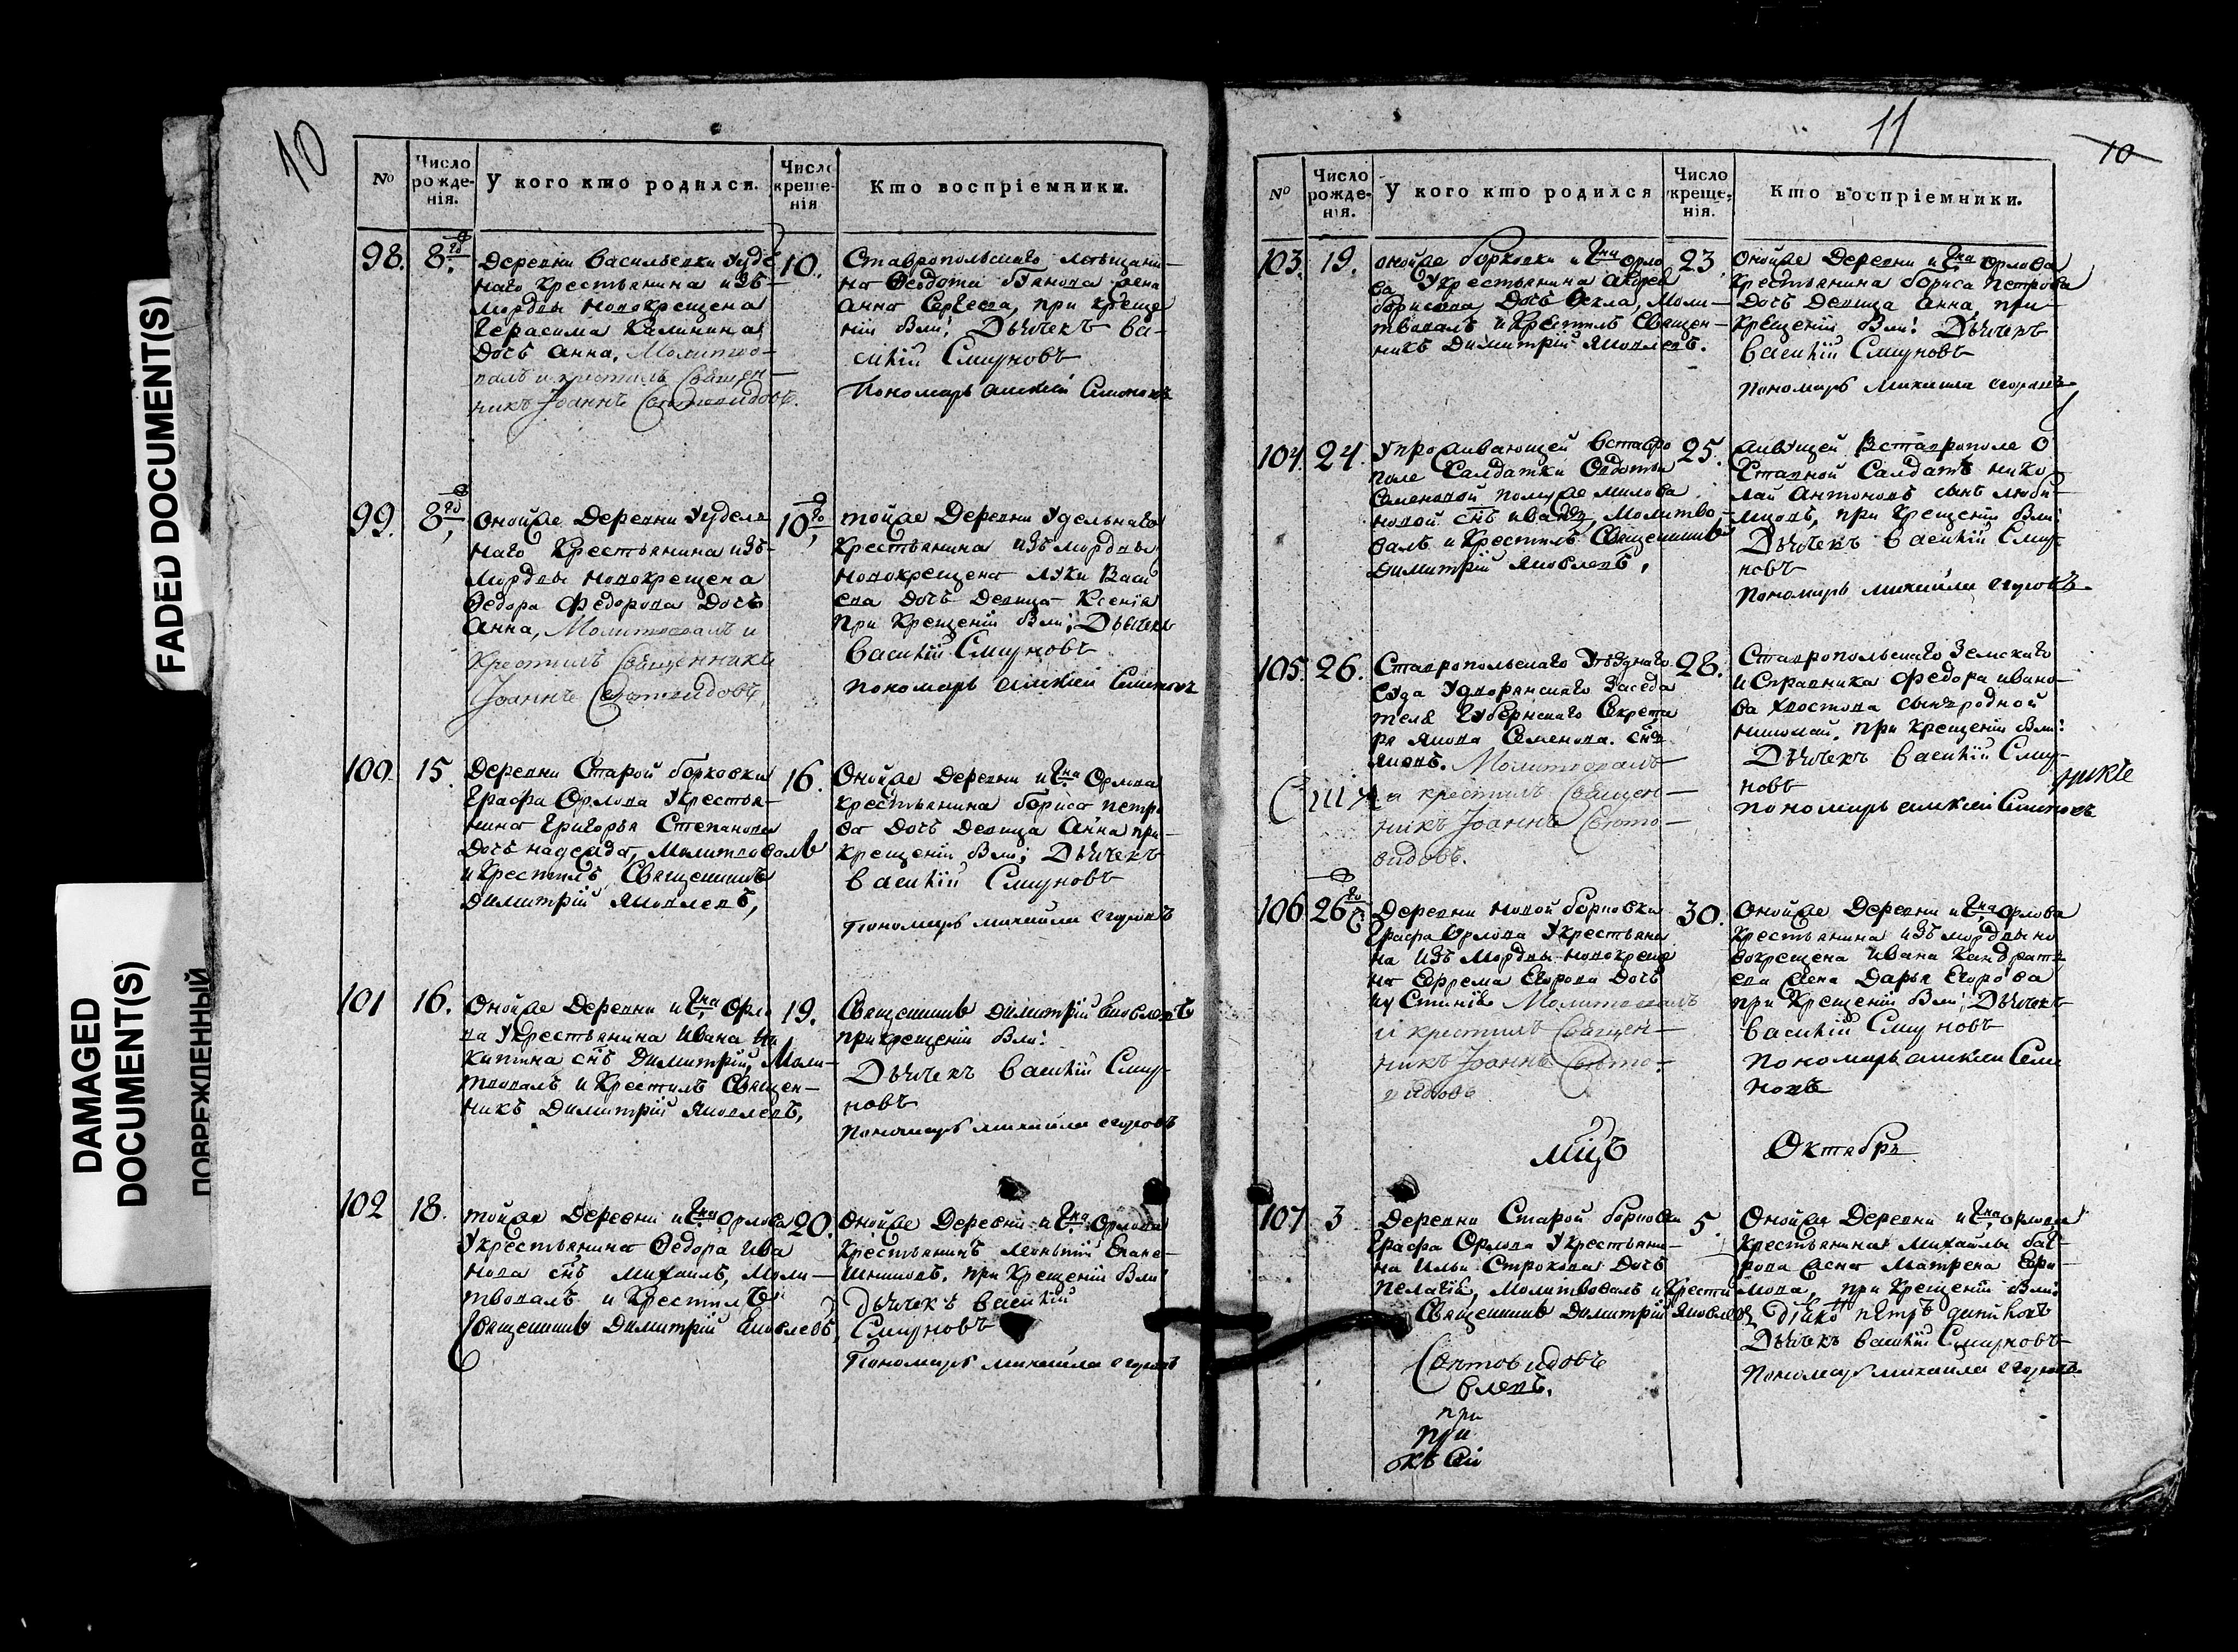 FADED DOCUMENT(S)
DAMAGED
DOCUMENT(S)
ПОВРЕЖДЕННЫЙ
10
№
Число рожде-нія.
У кого кто родился.
Число креще-нія
Кто воспріемники.
98. 8го 10.
Деревни Васильевки Удѣ
наго Крестьянина изъ
мордвы новокрещена
Герасима Калинина
дочь Анна, Молитво-
валъ и крестилъ Священ-
никъ Іоаннъ Святовидовъ.
Ставропольскаго мѣщани-
на Ѳедота жена
Анна Сергеева, при креще
ніи были: Дьячекъ Ва-
силій Смирновъ
Пономарь Алексѣй Симоновъ
99. 8го 10го
Оной же Деревни Удель
наго Крестьянина изъ
Мордвы новокрещена
Ѳедора Федорова Дочь
Анна, Молитвовалъ и
Крестилъ Священникъ
Іоаннъ Святовидовъ
той же Деревни Удельнаго
Крестьянина изъ мордвы
новокрещена Луки Васи
ева Дочь Девица Ксенія
при Крещеніи были: Дьячекъ
Василій Смирновъ
пономарь Алексѣй Симоновъ
100. 15. 16.
Деревни Старой борковки
Графа Орлова Укрестья-
нина Григорья Степанова
Дочь надежда, Молитвовалъ
и Крестилъ Священникъ
Димитрій Яковлевъ,
Оной же Деревни и Гна Орлова
крестьянина бориса петро
ва Дочь Девица Анна при
крещеніи были; Дьячекъ
Василій Смирновъ
Пономарь михайла егоровъ
101 16. 19.
Оной же Деревни и Гна Орло
ва Укрестьянина Ивана Ни
китина снъ Димитрій, Моли-
твовалъ и Крестилъ Священ-
никъ Димитрій Яковлевъ,
Священникъ Димитрій Яковлевъ
при крещеніи были:
Дьячекъ Василій Смир
новъ
Пономарь михайла егоровъ
102 18. 20.
той же Деревни и Гна Орлова
Укрестьянина Ѳедора Ива
нова снъ Михаилъ, Моли-
твовалъ и Крестилъ
Священникъ Димитрій Яковлевъ,
Оной же Деревни и Гна Орлова
Крестьянинъ Леонтій
при Крещеніи были
дьячекъ Василій
Смирновъ
Пономарь михайла егоровъ
11
10
№
Число рожде-нія.
У кого кто родился
Число креще-нія.
Кто воспріемники.
103. 19. 23.
оной же борковки и Гна Орло
ва Укрестьянина
борисова Дочь Ѳекла, Моли-
твовалъ и Крестилъ Священ-
никъ Димитрій Яковлевъ.
Оной же Деревни и Гна Орлова
Крестьянина бориса Петрова
Дочь Девица Анна, при
Крещеніи были: Дьячекъ
Василій Смирновъ
Пономарь михайла егоровъ
104. 24. 25.
Упроживающей вставро
поле Салдатки Овдотьи
Семеновой
снъ иванъ, Молитво-
валъ и Крестилъ Священникъ
Димитрій Яковлевъ,
живущей вставрополе о
ставной Салдатъ нико
лай Антоновъ сынъ
при Крещеніи были:
Дьячекъ Василій Смир
новъ
Пономарь михайла егоровъ
105. 26. 28.
Ставропольскаго Уѣзднаго
Суда Удворянскаго Заседа
теля Губернскаго Секрета
ря Якова Семенова. снъ
Яковъ. Молитвовалъ
и крестилъ Священ-
никъ Іоаннъ Свято-
видовъ.
Ставропольскаго Земскаго
Исправника Федора ивано-
ва Хвостова сынъ родной
николай, при крещеніи были:
Дьячекъ Василій Смир
новъ
пономарь алексѣй Симоновъ
никъ
106 26го 30.
Деревни новой борковки
Графа Орлова Укрестьяни
на изъ Мордвы новокреще
на Ефрема Егорова Дочь
Иустинія Молитвовалъ
и крестилъ Священ-
никъ Іоаннъ Свято-
видовъ
Оной же Деревни и Гна Орлова
Крестьянина изъ мордвы но
вокрещена Ивана Кандрать
ева жена Дарья Егорова
при Крещеніи были: Дьячекъ
Василій Смирновъ
Пономарь алексѣй Симо
новъ
мцъ Октябрь
107. 3 5.
Деревни Старой борковки
Графа Орлова Укрестьяни-
на Ильи Строкова Дочь
Пелагія, Молитвовалъ и Крести
Священникъ Димитрій Яковлев
Оной же Деревни и Гна Орлова
Крестьянина Михайлы
жена Матрена
при Крещеніи были:
Дьячекъ Василій Смирновъ
Пономарь михайла егоровъ
Святовидовъ
влевъ.
при
при